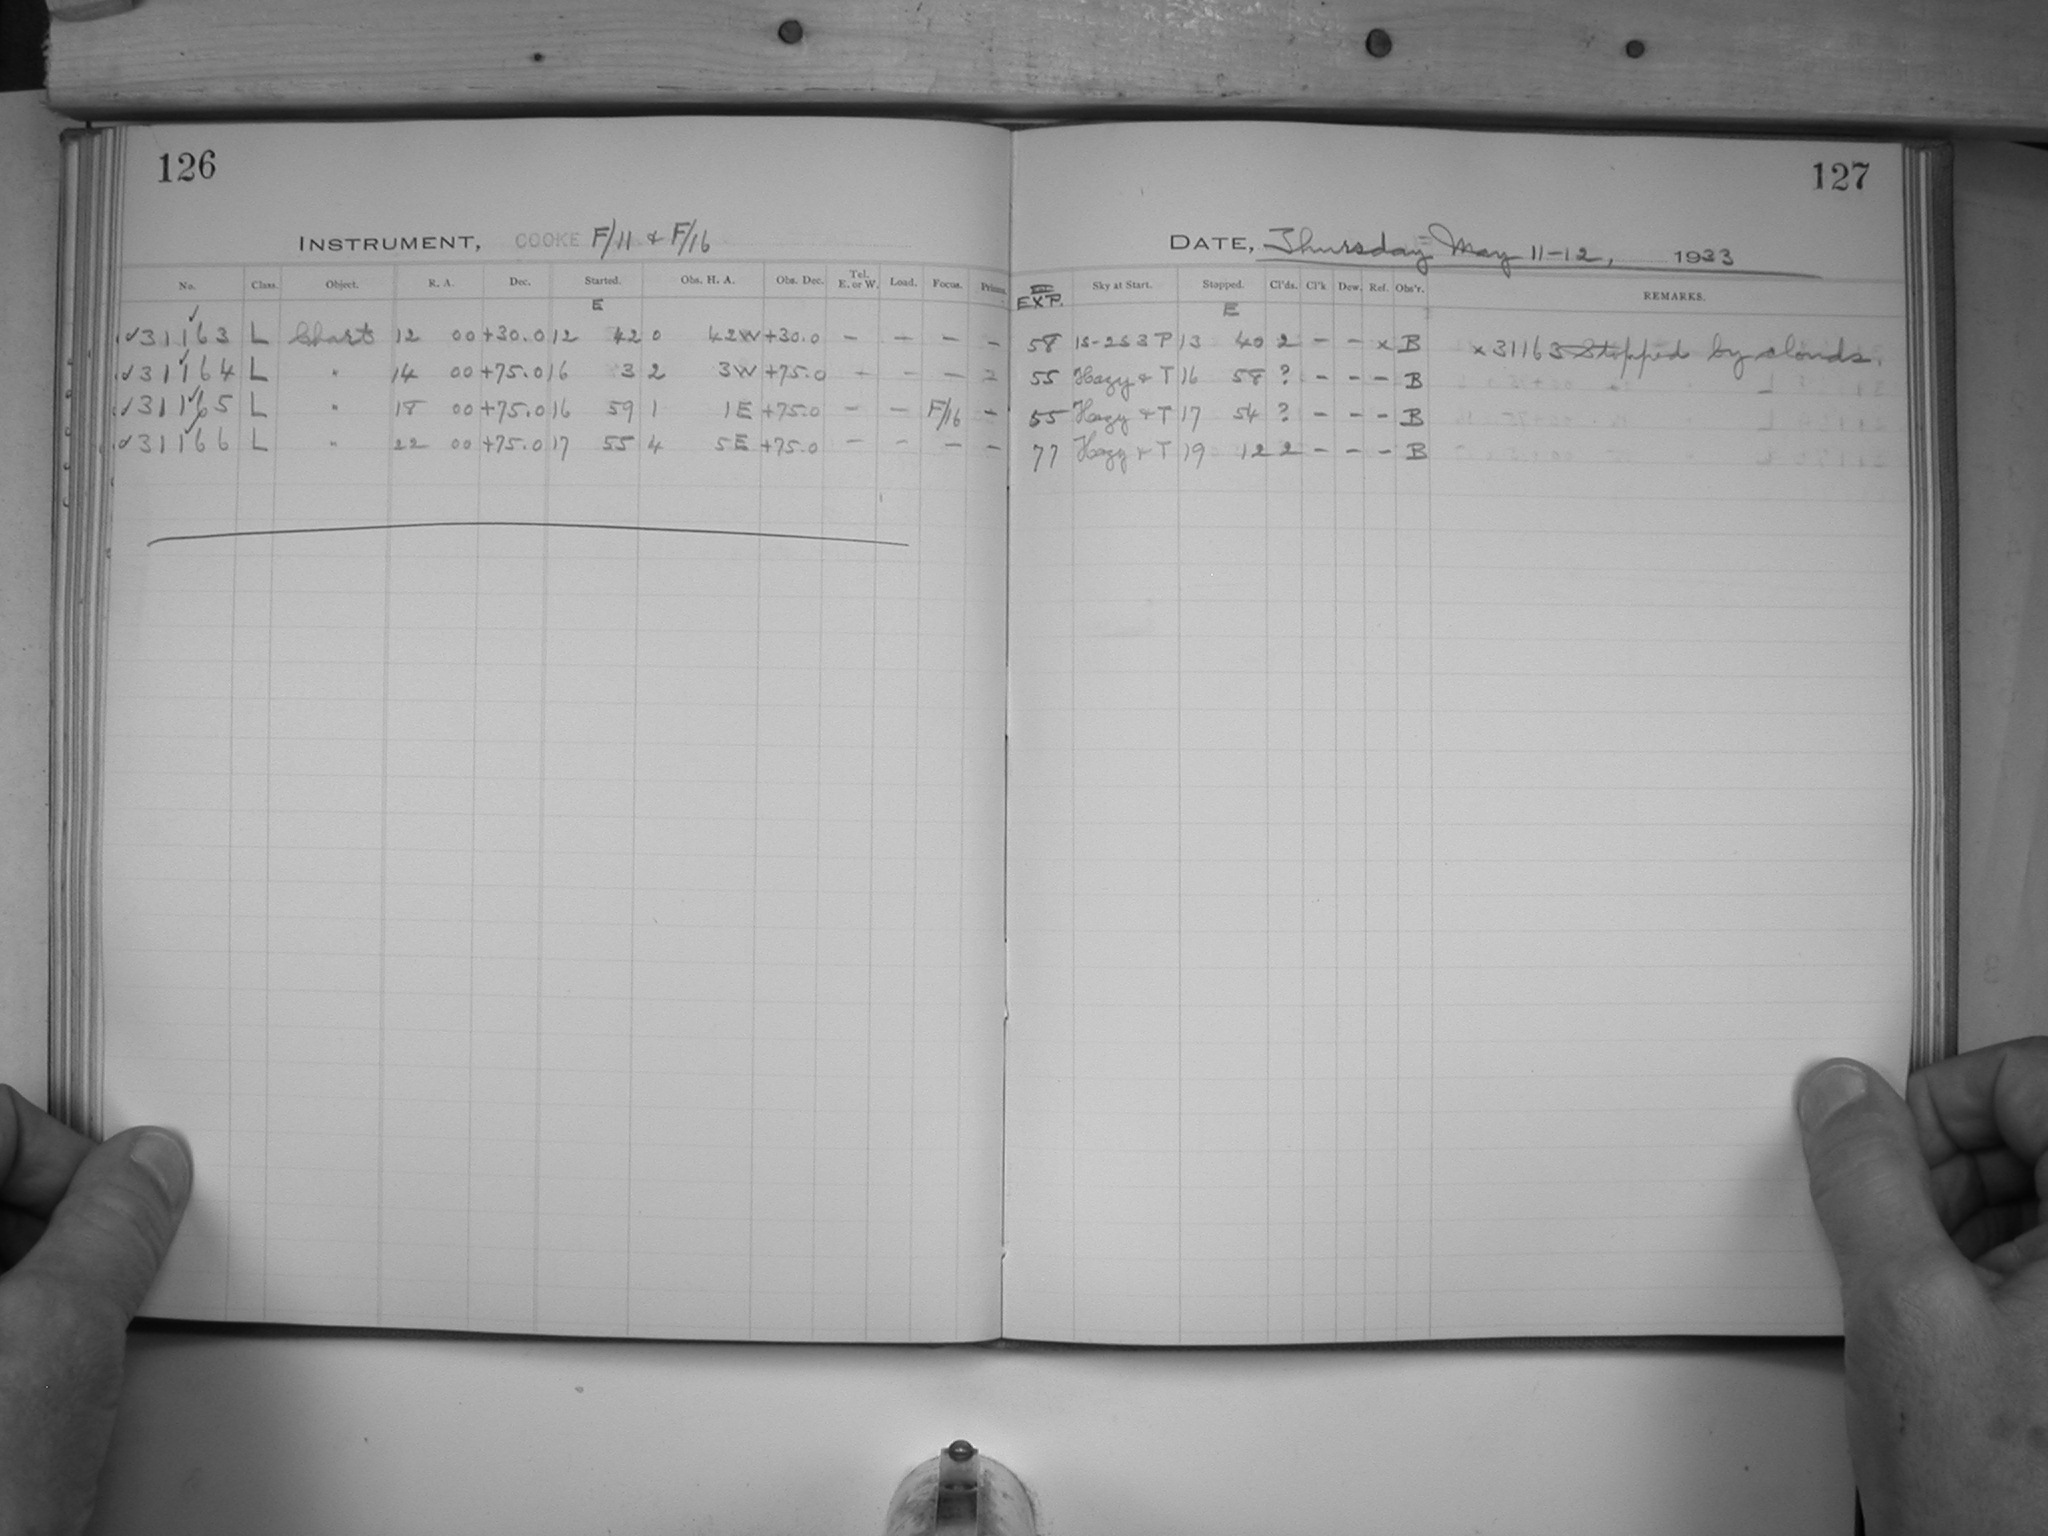 126
INSTRUMENT, COOKE F/11 & F/16
No. Class. Object. R. A. Dec. Started. Obs. H. A. Obs. Dec. Tel. E. or W. Load. Focus. Prisms.
E
✓31163 L Chart 12 00 +30.0 12 42 0 42W +30.0 – – – –
✓31164 L " 14 00 +75.0 16 3 2 3W +75.0 – – –
✓31165 L " 18 00 +75.0 16 59 1 1E +75.0 – – F/16 –
✓31166 L " 22 00 +75.0 17 55 4 5E +75.0 – - – –
127
DATE, Thursday May 11-12, 1933
EXP. Sky at Start. Stopped. Cl'ds. Cl'k Dew. Ref. Obs'r. REMARKS.
E
58 1S-2S 3 P 13 40 2 – – x B x31163 Stopped by clouds.
55 Hazy & T 16 58 ? – – – B
55 Hazy & T 17 54 ? – – – B
77 Hazy & T 19 12 2 – – – B